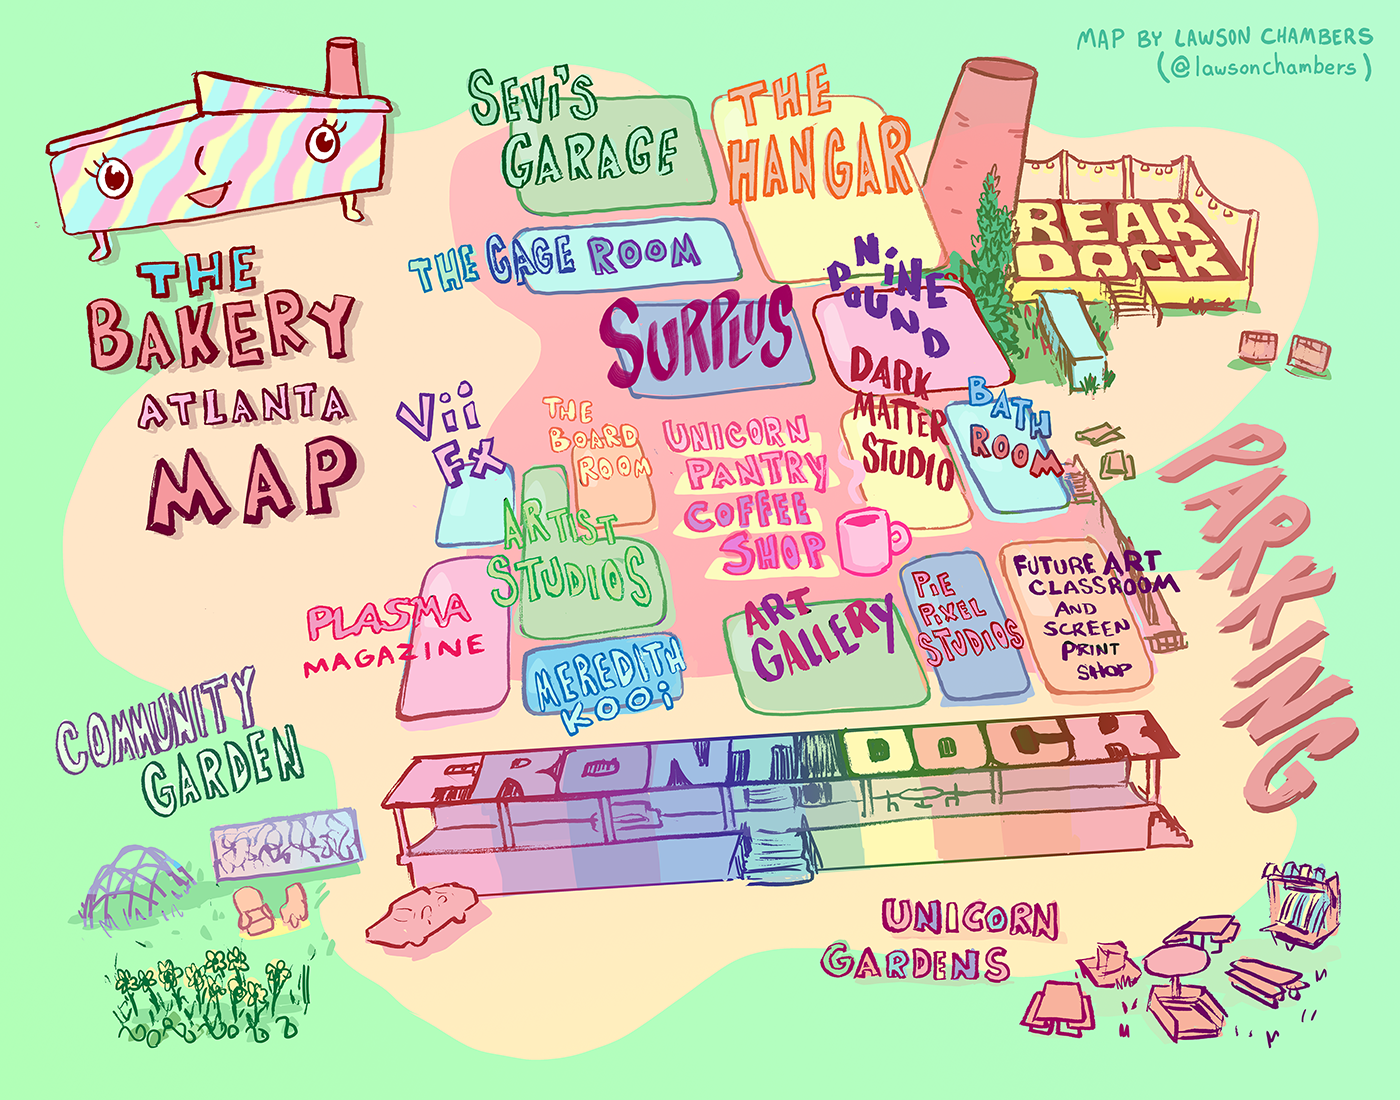 MAP BY LAWSON CHAMBERS
(@lawsonchambers)
THE
BAKERY
ATLANTA
MAP
SEVI'S
GARAGE
THE
HANGAR
REAR
DOCK
THE CAGE ROOM
SURPLUS
NINE
POUND
DARK
MATTER
STUDIO
BATH
ROOM
Vii
FX
THE
BOARD
ROOM
UNICORN
PANTRY
COFFEE
SHOP
ARTIST
STUDIOS
PARKING
PLASMA
MAGAZINE
MEREDITH
KOOi
ART
GALLERY
PiE
PiXEL
STUDIOS
FUTURE ART
CLASSROOM
AND
SCREEN
PRINT
SHOP
COMMUNITY
GARDEN
FRONT DOCK
UNICORN
GARDENS